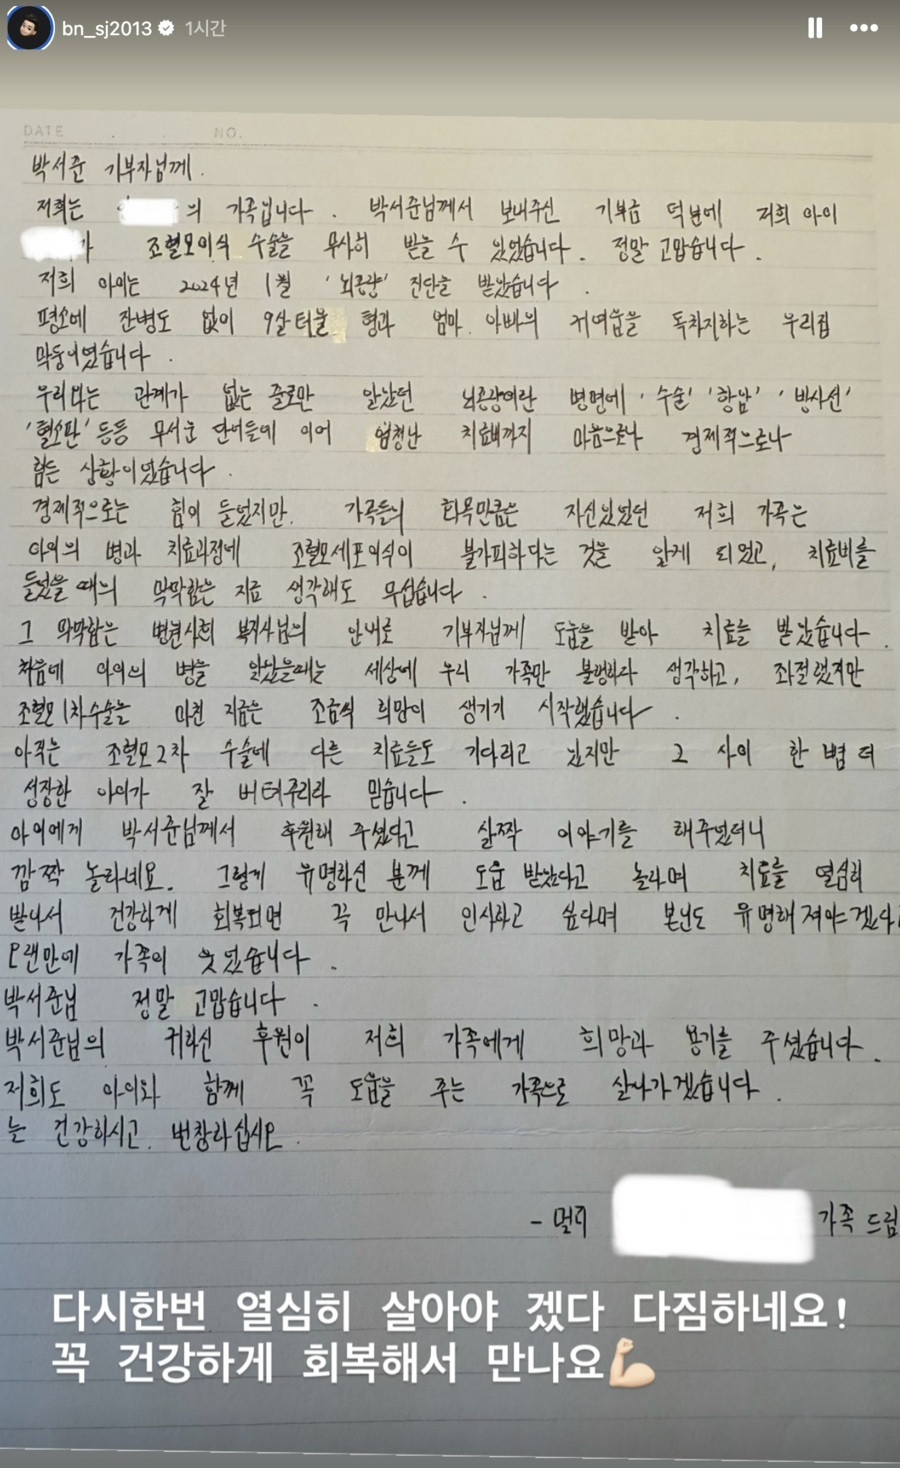 bn_sj2013 1시간
DATE . . NO.
박서준 기부자님께.
저희는 의 가족입니다. 박서준님께서 보내주신 기부금 덕분에 저희 아이
가 조혈모이식 수술을 무사히 받을 수 있었습니다. 정말 고맙습니다.
저희 아이는 2024년 1월 '뇌종양' 진단을 받았습니다.
평소에 잔병도 없이 9살터울 형과 엄마 아빠의 귀여움을 독차지하는 우리집
막둥이였습니다.
우리와는 관계가 없는 줄로만 알았던 뇌종양이란 병명에 '수술' '항암' '방사선'
'혈소판' 등등 무서운 단어들에 이어 엄청난 치료비까지 마음으로나 경제적으로나
힘든 상황이었습니다.
경제적으로는 힘이 들었지만, 가족들의 화목만큼은 자신있었던 저희 가족은
아이의 병과 치료과정에 조혈모세포이식이 불가피하다는 것을 알게 되었고, 치료비를
들었을 때의 막막함은 지금 생각해도 무섭습니다.
그 막막함은 병원사회 복지사님의 안내로 기부자님께 도움을 받아 치료를 받았습니다.
처음에 아이의 병을 알았을때는 세상에 우리 가족만 불행하다 생각하고, 좌절했지만
조혈모 1차수술을 마친 지금은 조금씩 희망이 생기기 시작했습니다.
아직은 조혈모 2차 수술에 다른 치료들도 기다리고 있지만 그 사이 한 뼘 더
성장한 아이가 잘 버텨주리라 믿습니다.
아이에게 박서준님께서 후원해 주셨다고 살짝 이야기를 해주었더니
깜짝 놀라네요. 그렇게 유명하신 분께 도움 받았다고 놀라며 치료를 열심히
받나서 건강하게 회복되면 꼭 만나서 인사하고 싶다며 본인도 유명해져야겠다
오랜만에 가족이 웃었습니다.
박서준님 정말 고맙습니다.
박서준님의 귀하신 후원이 저희 가족에게 희망과 용기를 주셨습니다.
저희도 아이와 함께 꼭 도움을 주는 가족으로 살아가겠습니다.
늘 건강하시고, 번창하십시오.
- 멀리 가족 드림
다시한번 열심히 살아야 겠다 다짐하네요!
꼭 건강하게 회복해서 만나요💪🏻